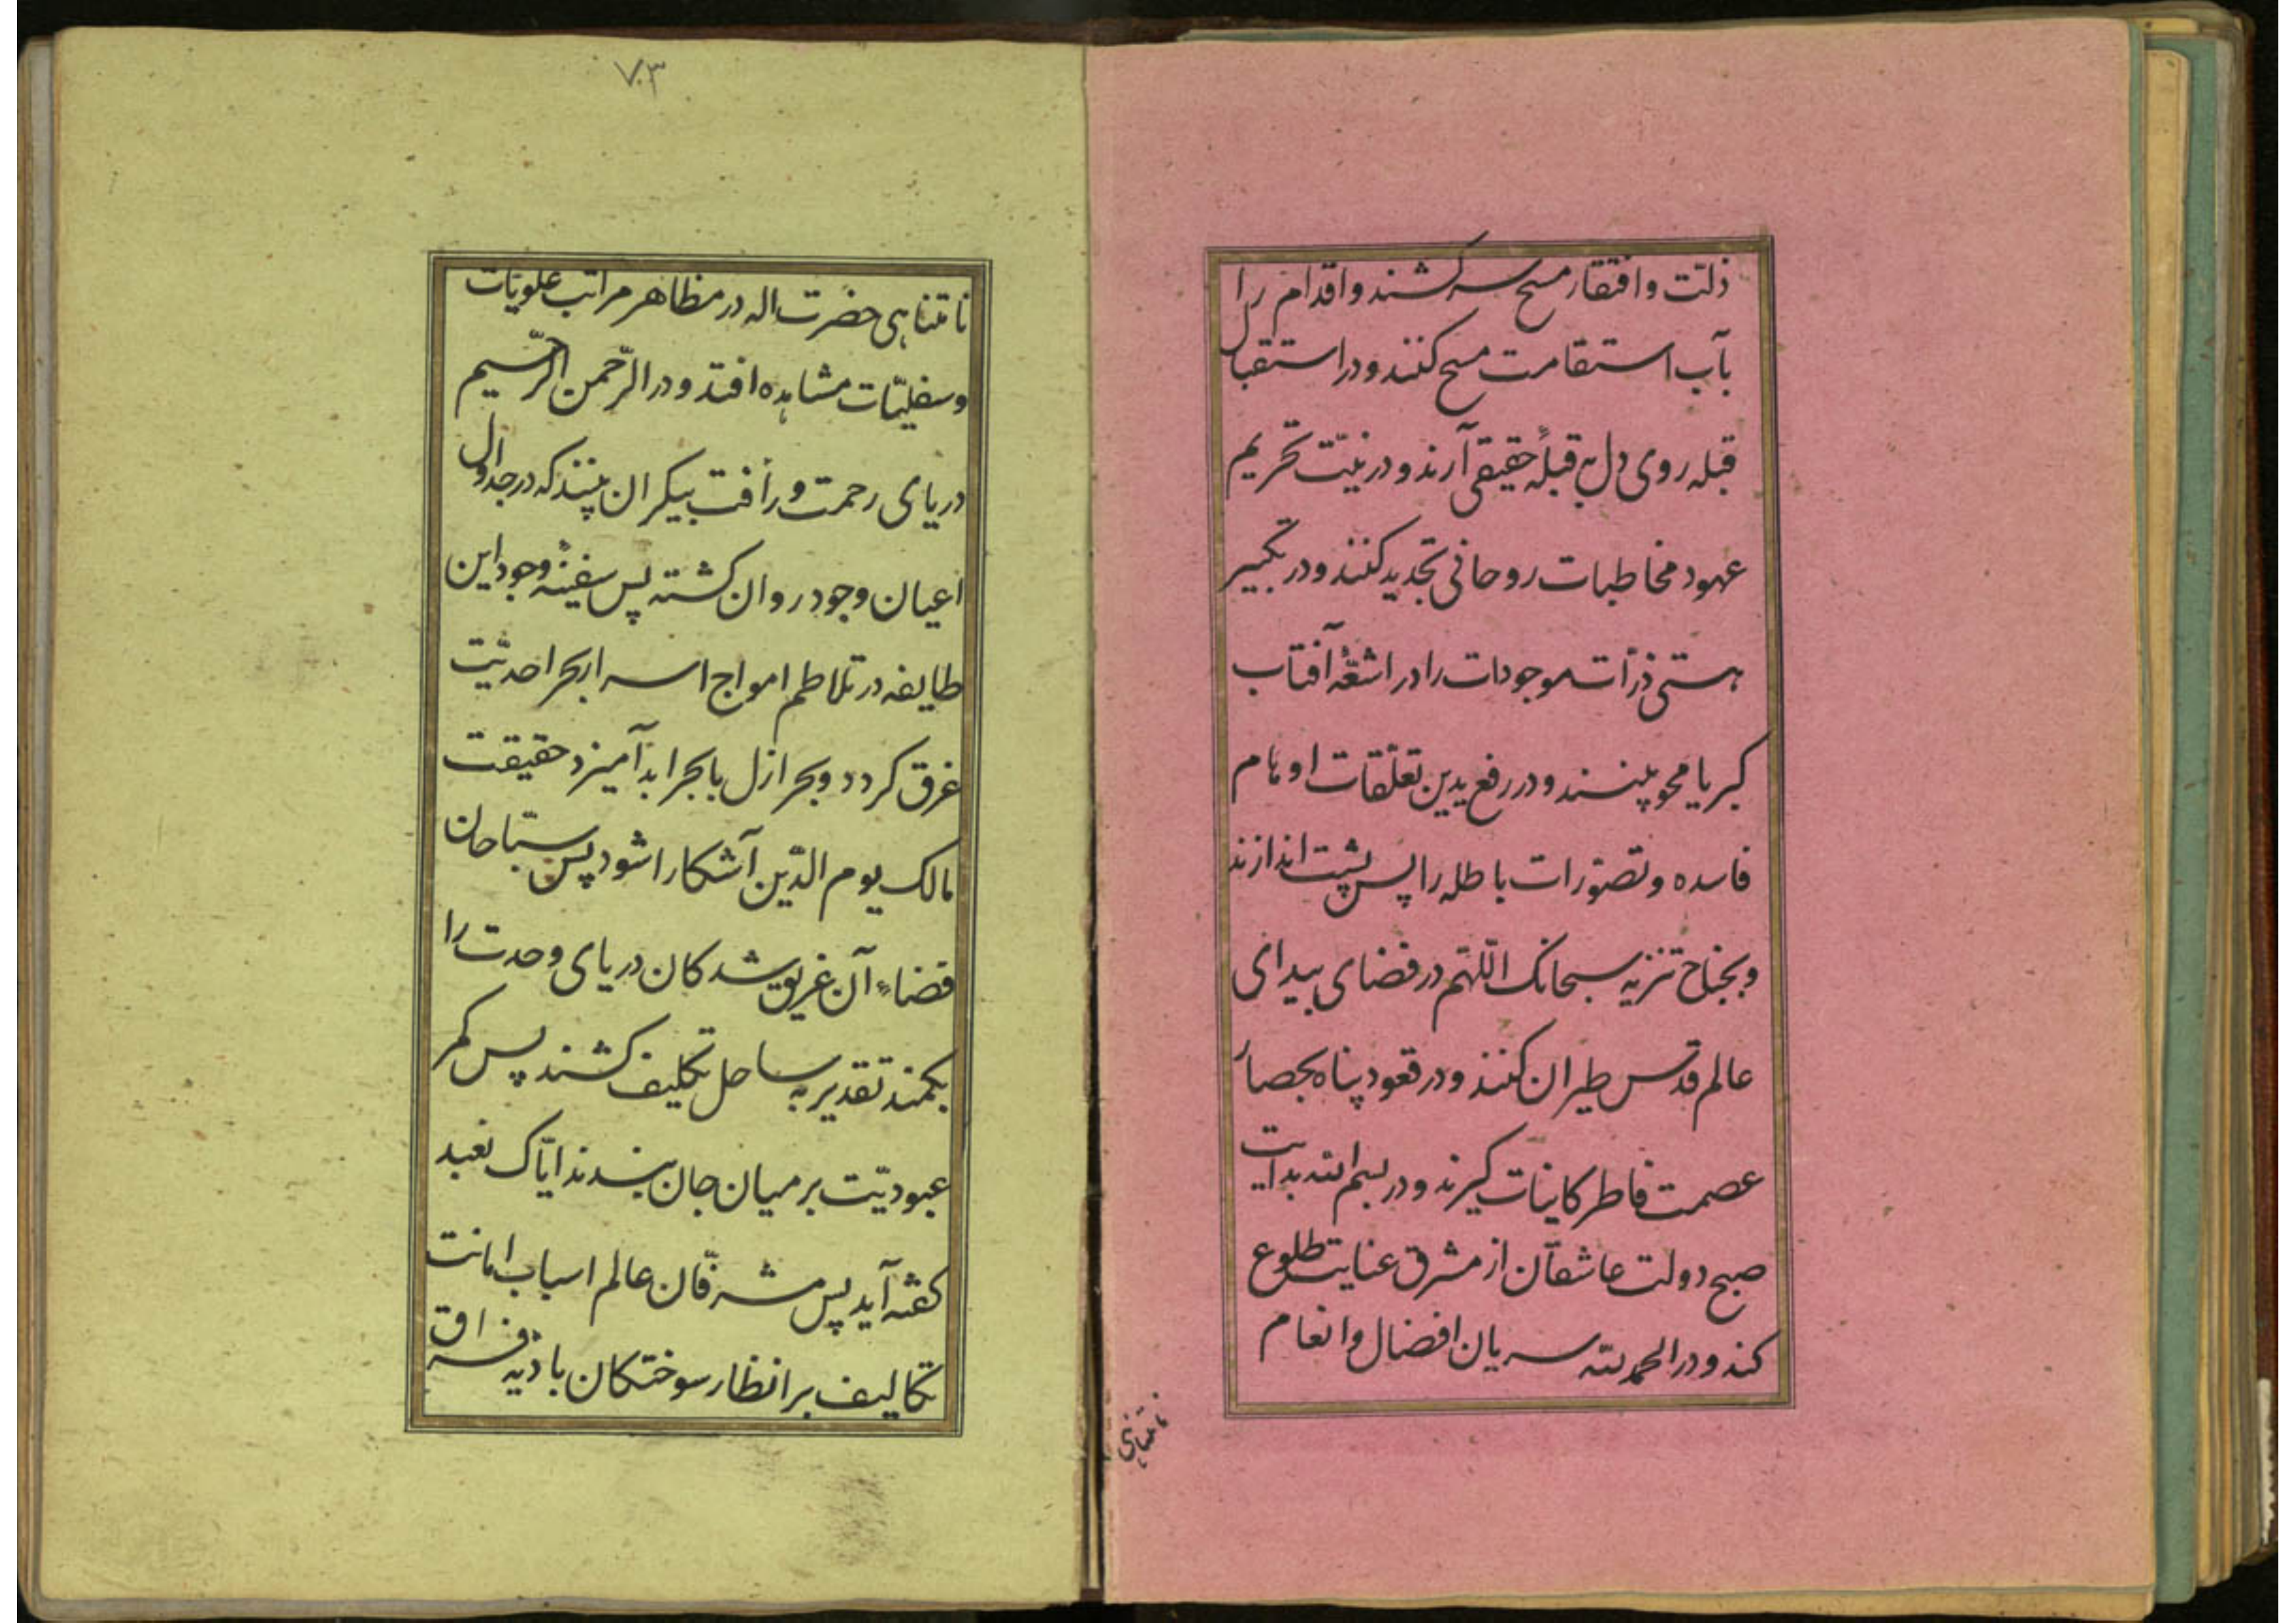 ذلّت و افتقار مسح سر کشند و اقدام را
بآب استقامت مسح کنند و در استقبال
قبله روی دل بقبلهٔ حقیقی آرند و در نیّت تحریم
عهود مخاطبات روحانی تجدید کنند و در تکبیر
هستی ذرّات موجودات را در اشعّهٔ آفتاب
کبریا محو بینند و در رفع یدین تعلّقات اوهام
فاسده و تصوّرات باطله را پس پشت اندازند
و بجناح تنزیه سبحانک اللّهمّ در فضای بیدای
عالم قدس طیران کنند و در قعود پناه بحصار
عصمت فاطر کاینات گیرند و در بسم الله بدایت
صبح دولت عاشقان از مشرق عنایت طلوع
کند و در الحمد لله سریان افضال و انعام
نامتناهی
۷۰۳
نامتناهی حضرت اله در مظاهر مراتب علویّات
و سفلیّات مشاهده افتد و در الرّحمن الرّحیم
دریای رحمت و رأفت بیکران بینند که در جداول
اعیان وجود روان کشته پس سفینهٔ وجود این
طایفه در تلاطم امواج اسرار بحر احدیّت
غرق کردد و بحر ازل با بحر ابد آمیزد حقیقت
مالک یوم الدّین آشکارا شود پس سبّاحان
قضاء آن غریق شدکان دریای وحدت را
بکمند تقدیر به ساحل تکلیف کشند پس کمر
عبودیّت بر میان جان بندند ایّاک نعبد
کفته آید پس مشرفان عالم اسباب امانت
تکالیف بر انظار سوختکان بادیه فراق